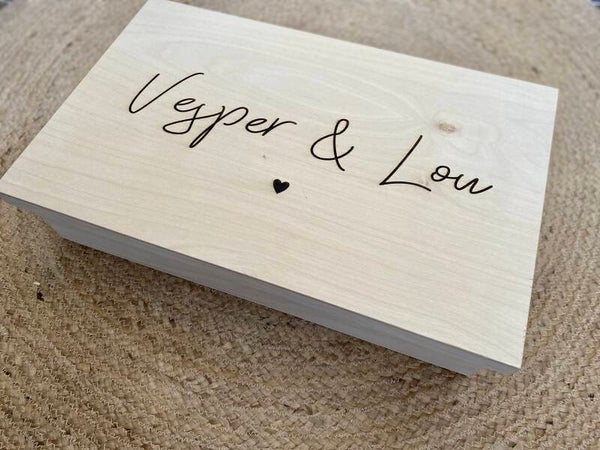 Vesper & Lou